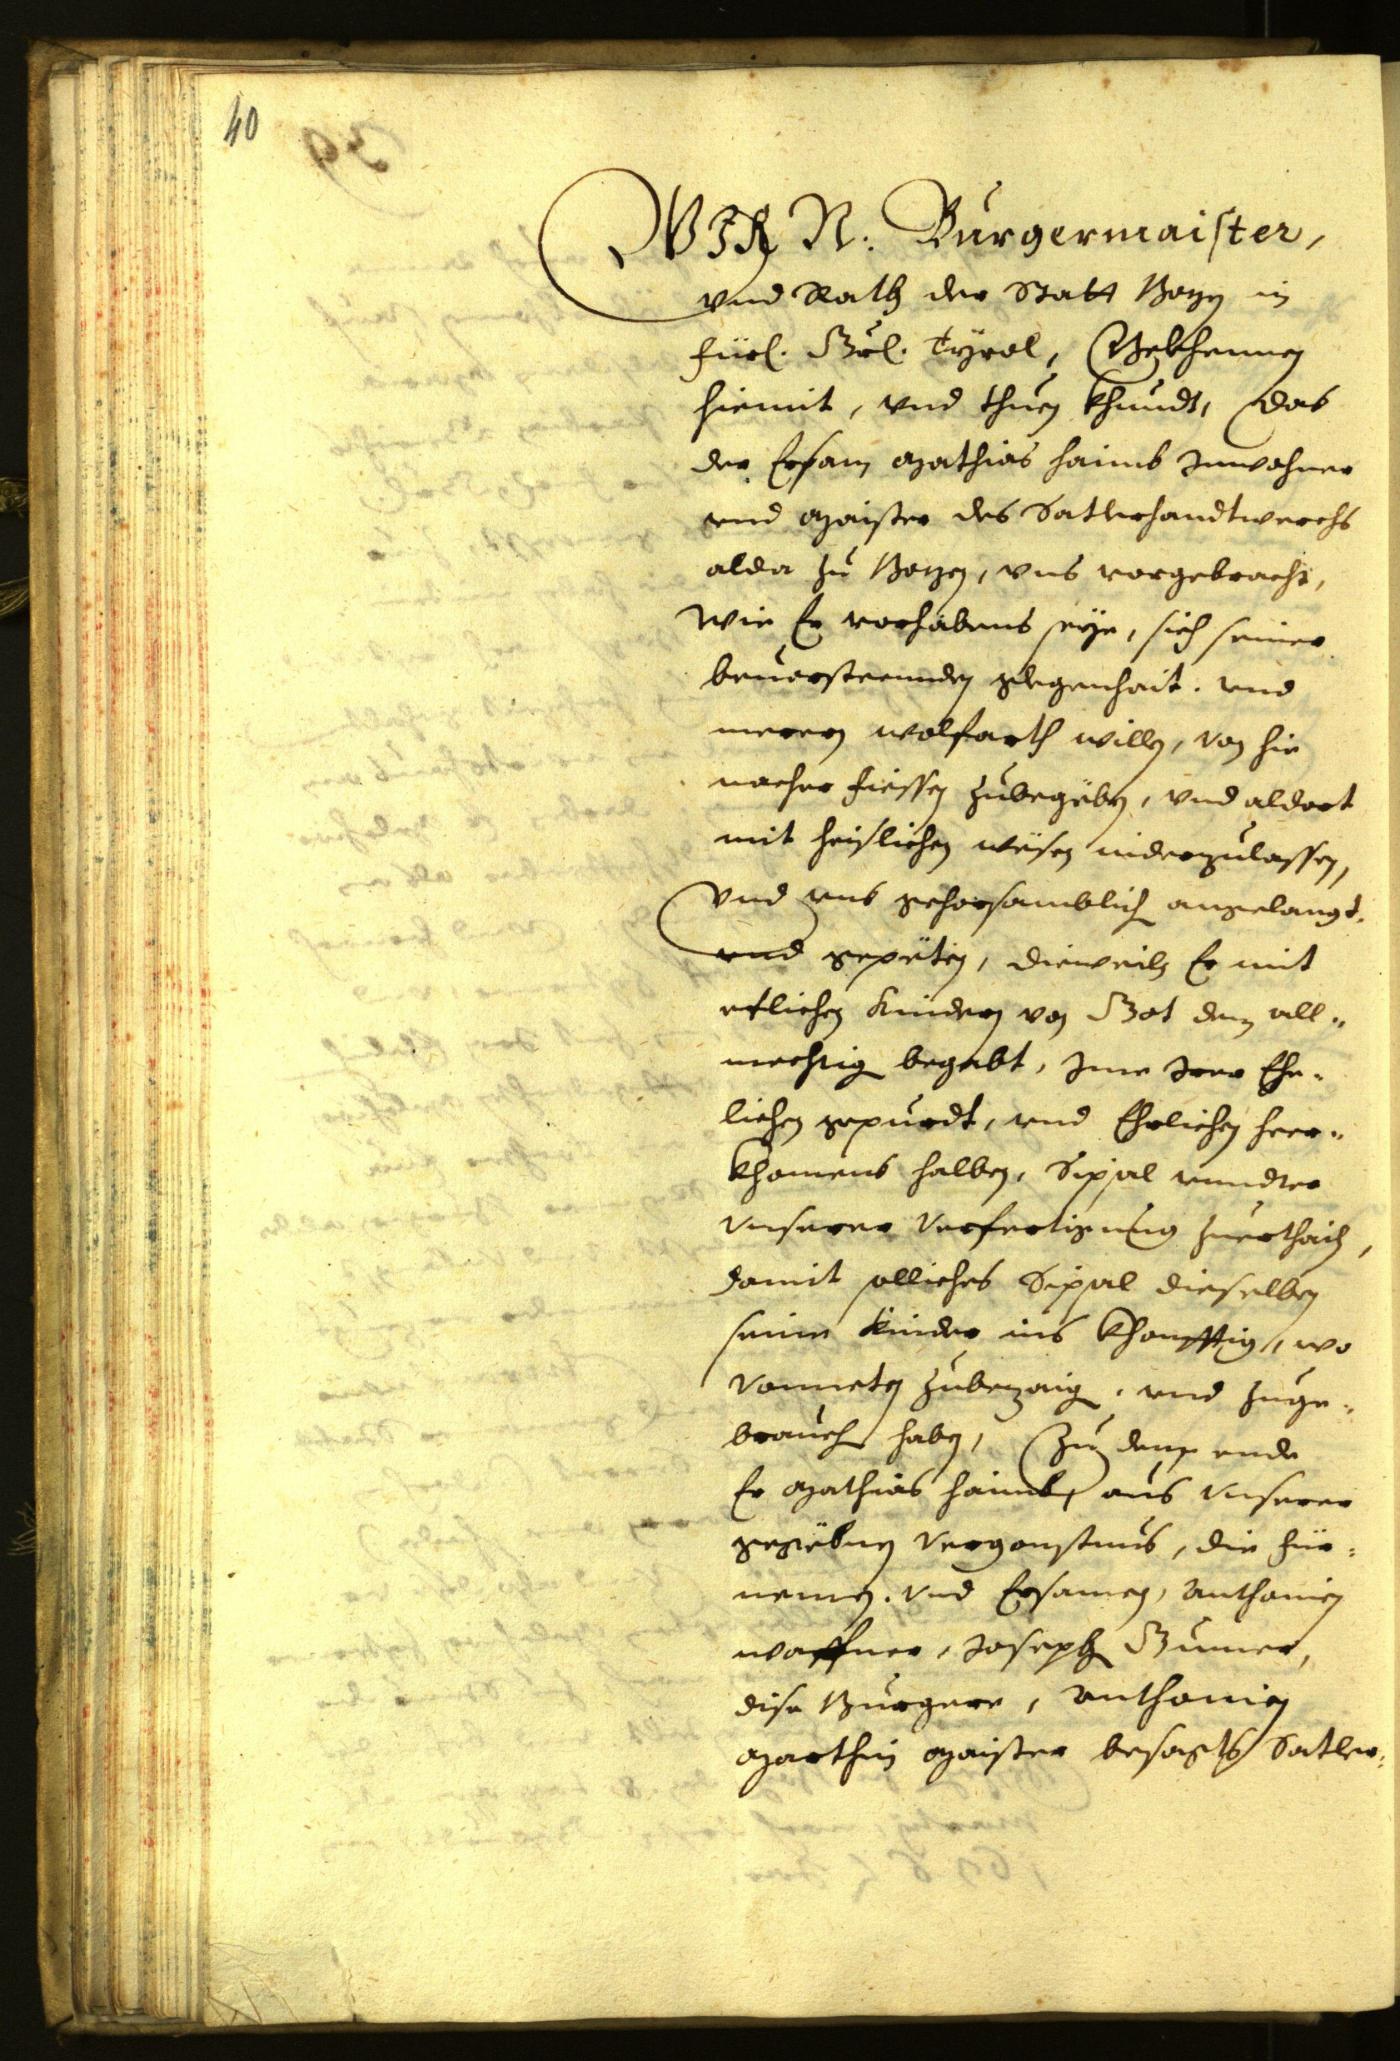 40
WIR N: Burgermaister,
vnd Rath der Statt Bozen in
fürl. Grl. Tyrol, Bekhennen
hiemit, vnd thuen khundt, Das
der Ersam Mathias Haimb Inwohner
vnd Maister des Satlerhandtwerchs
alda zu Bozen, vns vorgebracht,
Wie Er vorhabens seye, sich seiner
beuorsteenden glegenhait. vnd
merern wolfarth willen, von hie
nacher Fiessen zubegëben, vnd aldort
mit heislichen wësen niderzulassen,
Vnd vns gehorsamblich angelangt.
vnd gepëten, dieweiln Er mit
etlichen Kindern von Got dem all-
mechtig begabt, Ime Irer Ehe-
lichen gepurdt, vnd Ehrlichen heer-
khomens halben, Sigal vnndter
Vnserer Verfertigung zuerthailn,
damit solliches Sigal dieselben
seine Kinder ins khonfftig, wo
Vonneten zubezaig, vnd zuge-
brauch haben, Zu dem ende
Er Mathias Haimb, aus Vnserer
gegëbnen Vergonstnus, die für-
nemen. Vnd Ersamen, Anthonien
Waffner, Joseph Gumer,
dise Burgere, Anthonien
Marthin Maister besagts Satler-